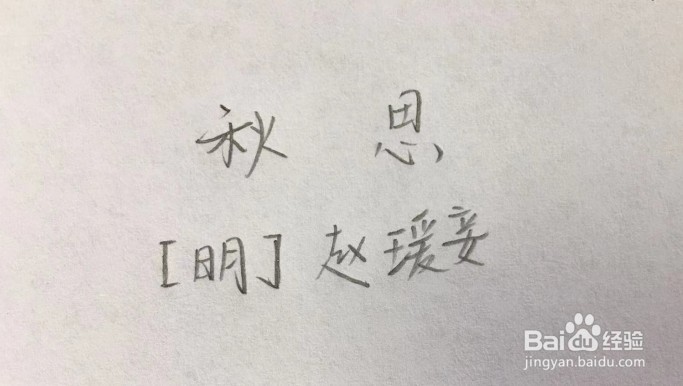 秋 思
[明] 赵瑗妾
Baidu 经验
jingyan.baidu.com